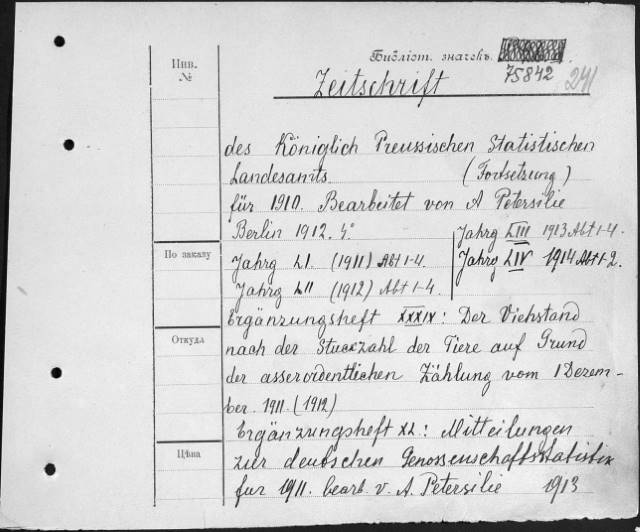 Инв.
№
Библіот. значекъ
75842 241
Zeitschrift
des Königlich Preussischen Statistischen
Landesamts. (Fortsetzung)
für 1910. Bearbeitet von A Petersilie
Berlin 1912. 4°
Jahrg LIII 1913 Abt 1-4.
По заказу
Jahrg LI. (1911) Abt 1-4.
Jahrg LIV 1914 Abt 1-2.
Jahrg LII (1912) Abt 1-4.
Ergänzungsheft XXXIX: Der Viehstand
Откуда
nach der Stuckzahl der Tiere auf Grund
der asserordentlichen Zählung vom 1 Dezem-
ber 1911. (1912)
Ergänzungsheft XL: Mitteilungen
Цѣна
zur deutschen Genossenschaftsstatistik
fur 1911. bearb. v. A. Petersilie 1913